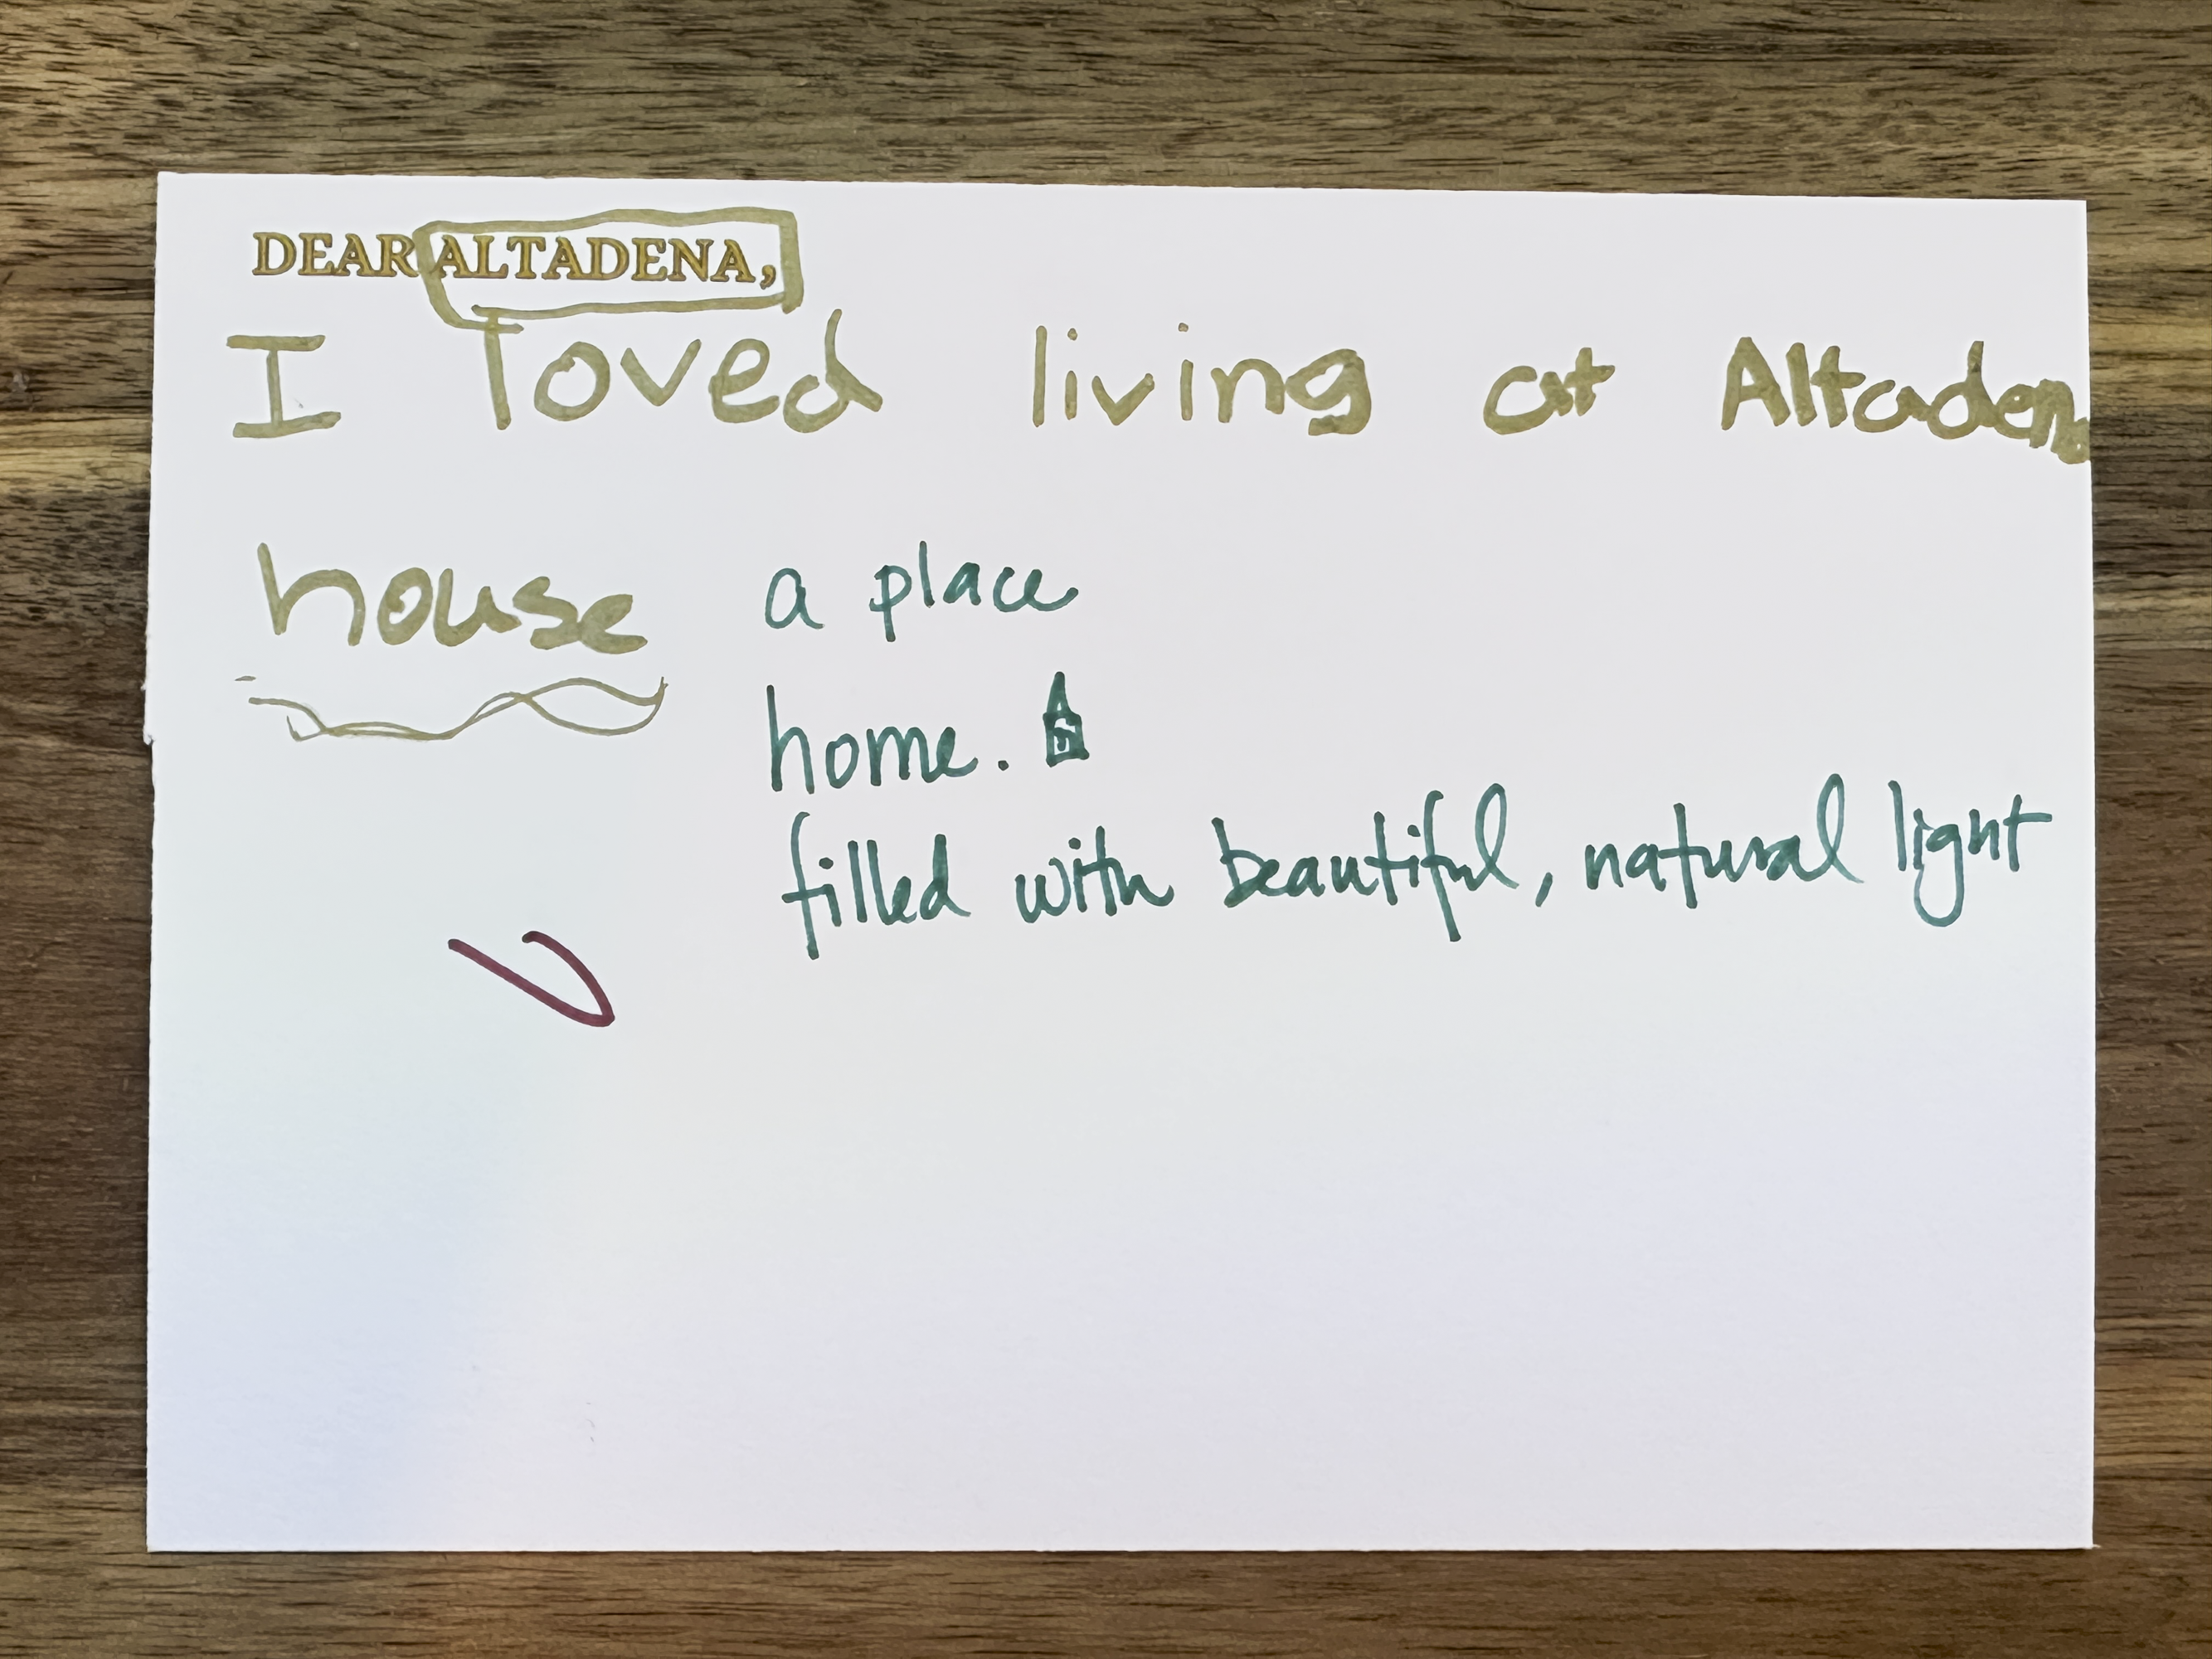 DEAR ALTADENA,
I loved living at Altadena
house
a place
home.
filled with beautiful, natural light